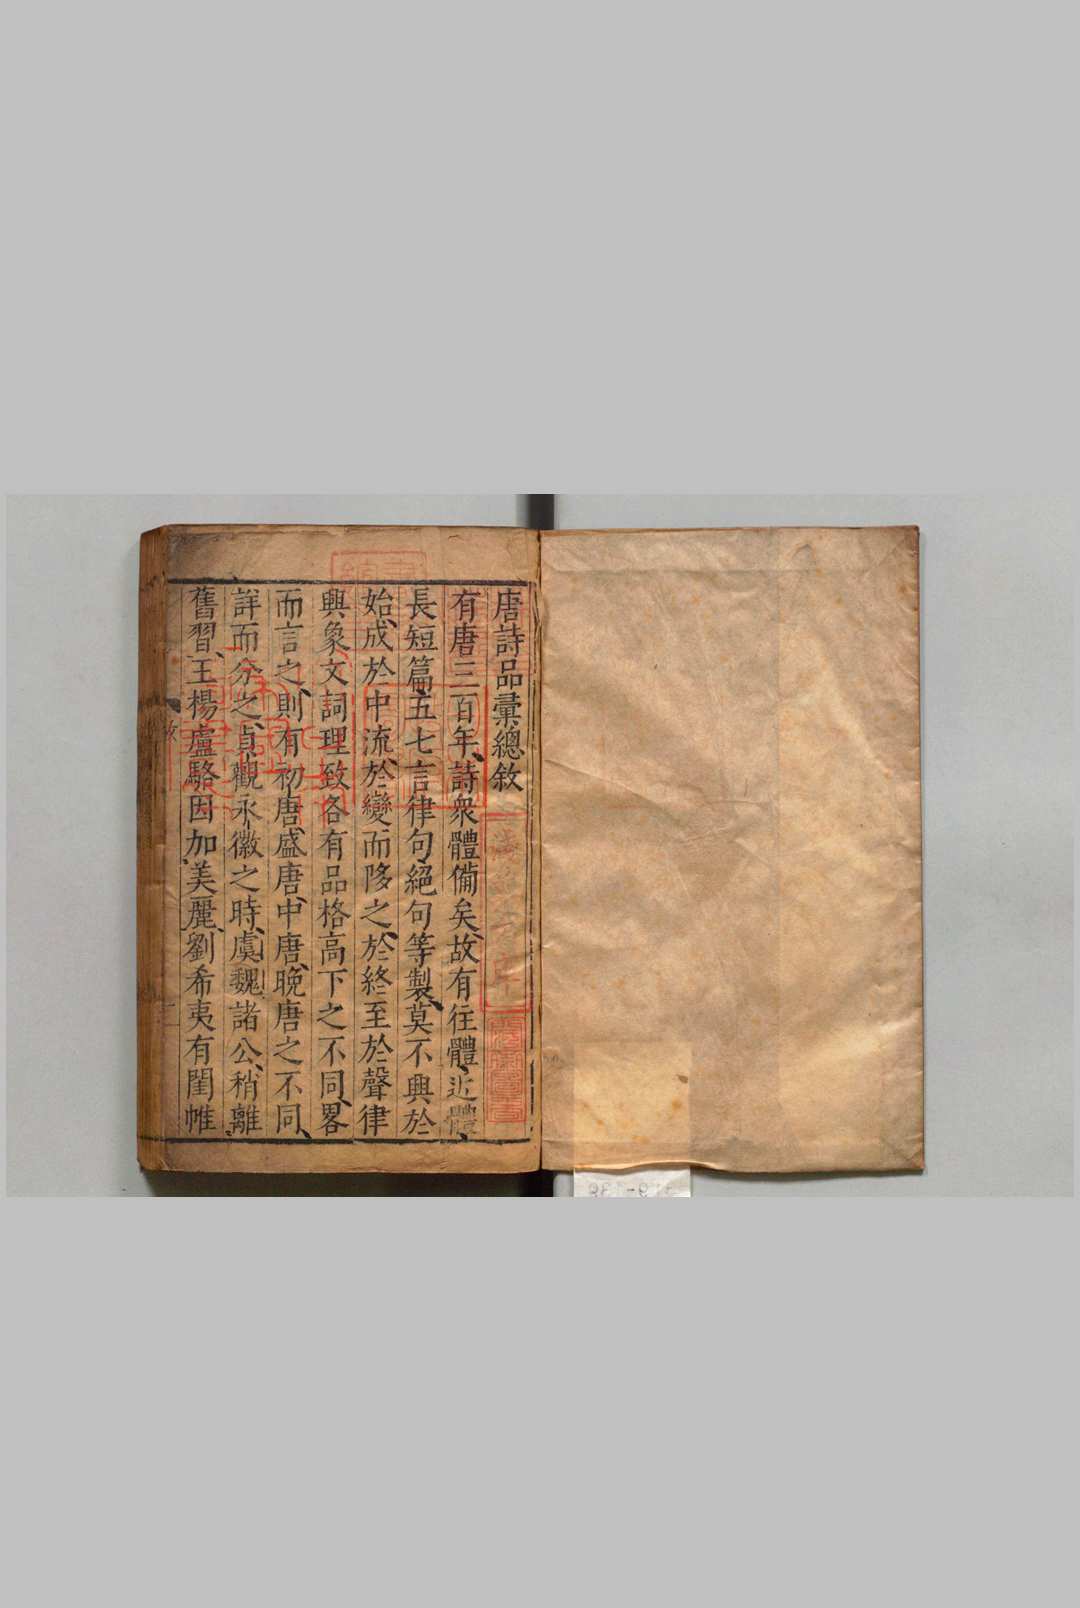 唐詩品彙總敘
有唐三百年、詩衆體備矣、故有往體、近體、
長短篇、五七言律句絕句等製、莫不興於
始、成於中、流於變、而陊之於終、至於聲律
興象文詞理致、各有品格高下之不同、畧
而言之、則有初唐、盛唐、中唐、晚唐之不同、
詳而分之、貞觀永徽之時、虞魏諸公、稍離
舊習、王楊盧駱、因加美麗、劉希夷有閨帷